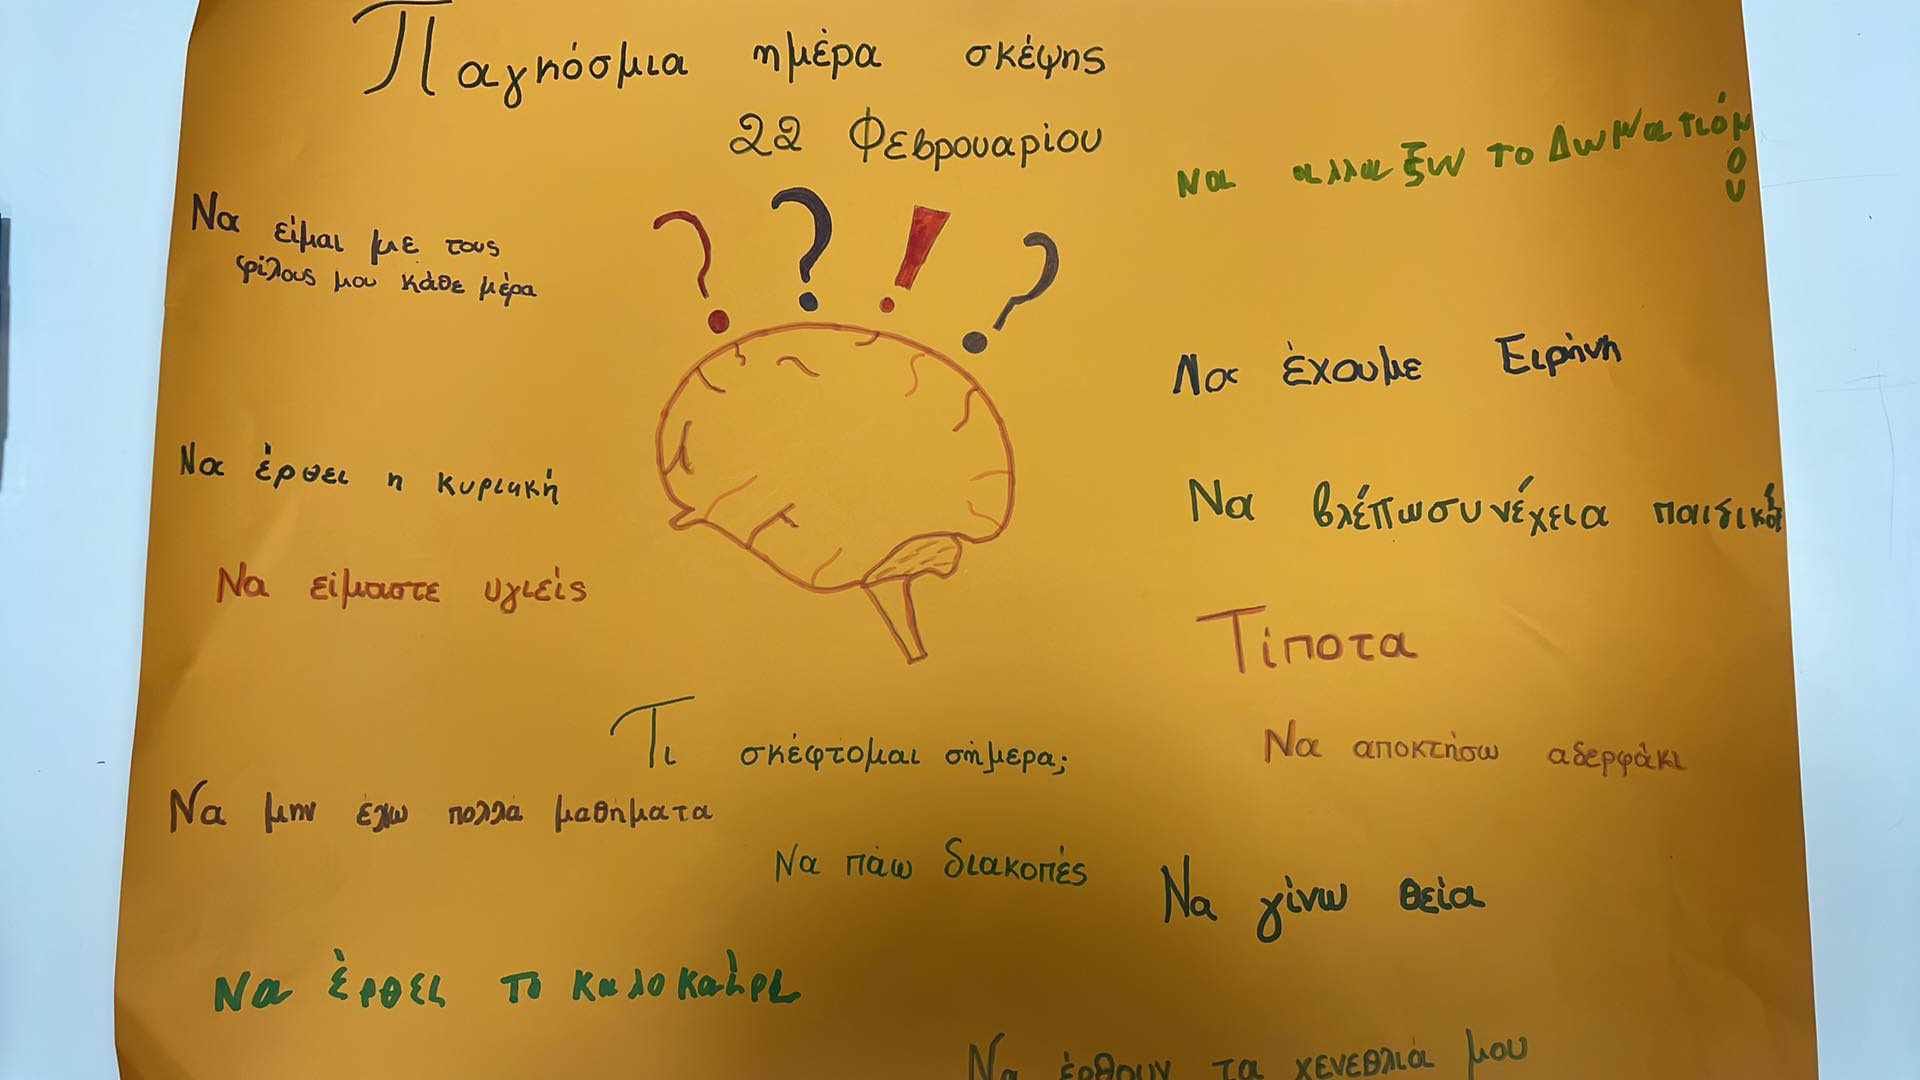 Παγκόσμια ημέρα σκέψης
22 Φεβρουαρίου
Να αλλαξω το Δωματιόμου
Να είμαι με τους
φίλους μου κάθε μέρα
Να έχουμε Ειρήνη
Να έρθει η κυριακή
Να βλέπωσυνέχεια παιδικά
Να είμαστε υγιείς
Τίποτα
Τι σκέφτομαι σήμερα;
Να αποκτήσω αδερφάκι
Να μην έχω πολλά μαθήματα
Να πάω διακοπές
Να γίνω θεία
Να έρθει το καλοκαίρι
Να έρθουν τα χενέθλιά μου